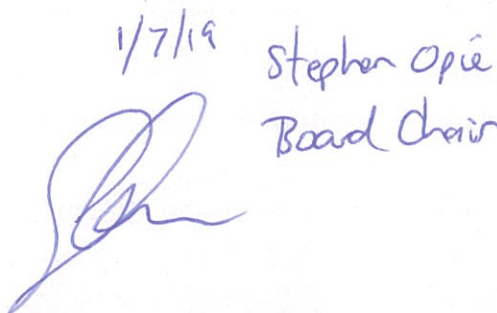 1/7/19
Stephen Opie
Board Chair